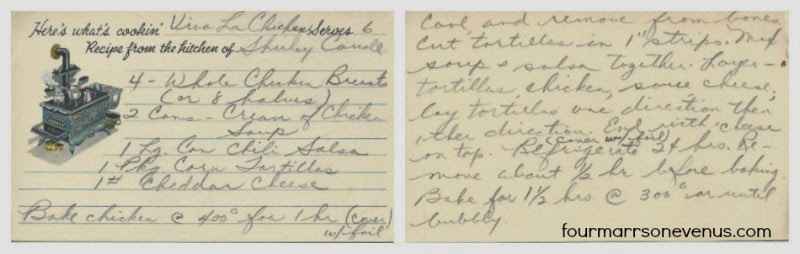 Here's what's cookin' Viva La Chicken Serves 6
Recipe from the kitchen of Shirley
4 - Whole Chicken Breasts
(or 8 halves)
2 Cans - Cream of Chicken
Soup
1 Lg. Can Chili Salsa
1 Pkg Corn Tortillas
1# Cheddar Cheese
Bake chicken @ 400° for 1 hr (cover)
w/foil
Cool and remove from bones.
Cut tortillas in 1" strips. Mix
soup & salsa together. Layer -
tortillas, chicken, sauce, cheese,
lay tortillas one direction then
other direction. End with cheese
(cover w/foil)
on top. Refrigerate 24 hrs. Re-
move about ½ hr before baking.
Bake for 1½ hrs @ 300° or until
bubbly.
fourmarrsonevenus.com